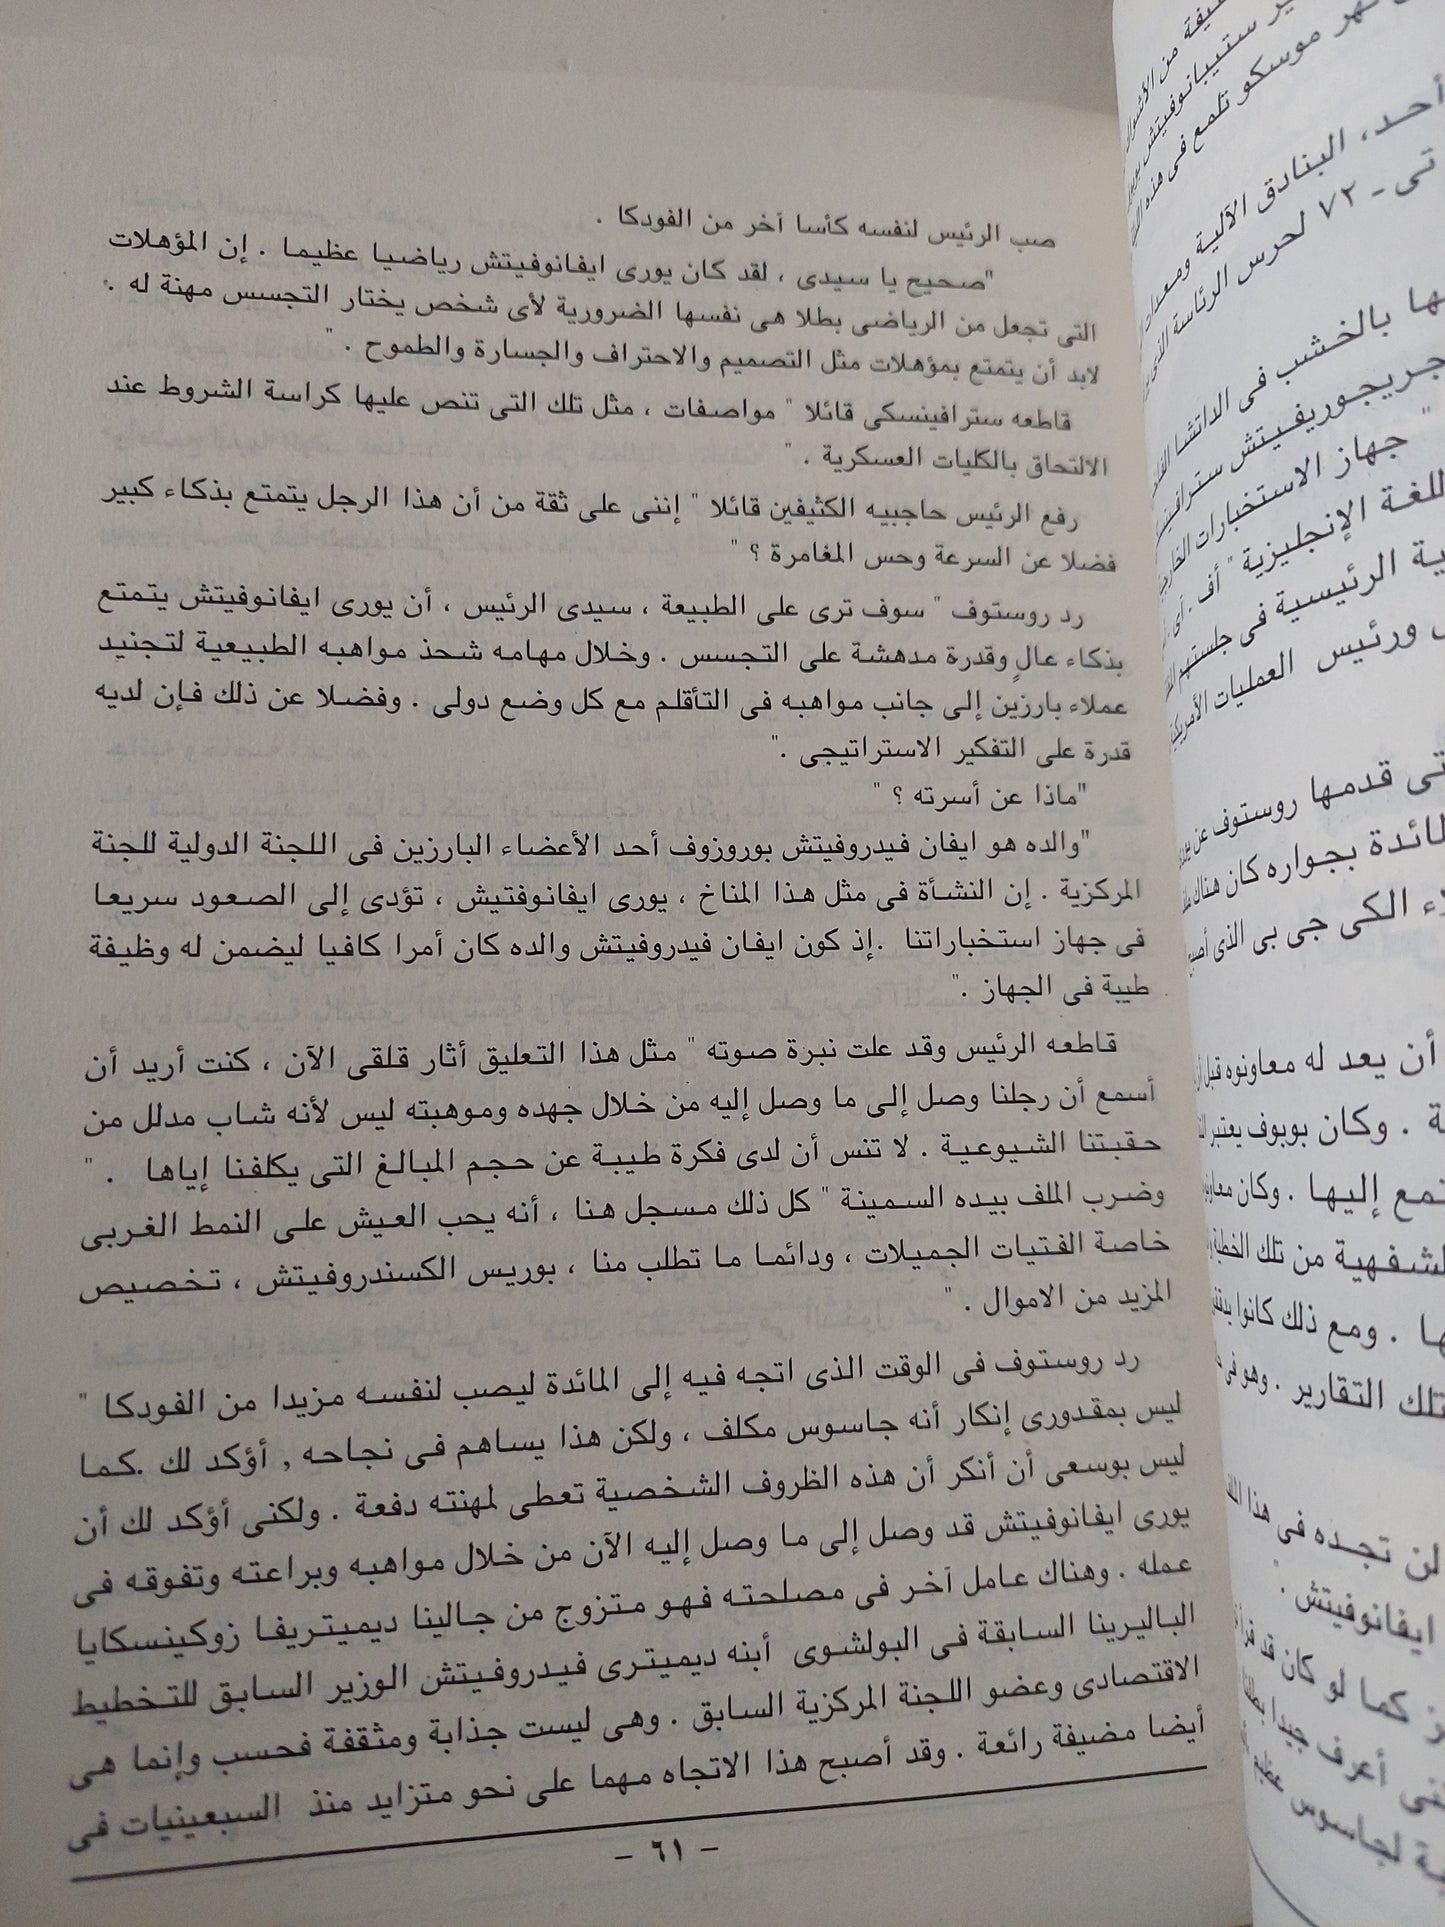 صب الرئيس لنفسه كأسا آخر من الفودكا .
"صحيح يا سيدى ، لقد كان يورى ايفانوفيتش رياضيا عظيما . إن المؤهلات
التى تجعل من الرياضى بطلا هى نفسها الضرورية لأى شخص يختار التجسس مهنة له .
لابد أن يتمتع بمؤهلات مثل التصميم والاحتراف والجسارة والطموح . "
قاطعه سترافينسكى قائلا " مواصفات ، مثل تلك التى تنص عليها كراسة الشروط عند
الالتحاق بالكليات العسكرية . "
رفع الرئيس حاجبيه الكثيفين قائلا " إننى على ثقة من أن هذا الرجل يتمتع بذكاء كبير
فضلا عن السرعة وحس المغامرة ؟ "
رد روستوف " سوف ترى على الطبيعة ، سيدى الرئيس ، أن يورى ايفانوفيتش يتمتع
بذكاء عالٍ وقدرة مدهشة على التجسس . وخلال مهامه شحذ مواهبه الطبيعية لتجنيد
عملاء بارزين إلى جانب مواهبه فى التأقلم مع كل وضع دولى . وفضلا عن ذلك فإن لديه
قدرة على التفكير الاستراتيجى ."
"ماذا عن أسرته ؟ "
"والده هو ايفان فيدروفيتش بوروزوف أحد الأعضاء البارزين فى اللجنة الدولية للجنة
المركزية . إن النشأة فى مثل هذا المناخ ، يورى ايفانوفتيش ، تؤدى إلى الصعود سريعا
فى جهاز استخباراتنا .إذ كون ايفان فيدروفيتش والده كان أمرا كافيا ليضمن له وظيفة
طيبة فى الجهاز ."
قاطعه الرئيس وقد علت نبرة صوته " مثل هذا التعليق أثار قلقى الآن ، كنت أريد أن
أسمع أن رجلنا وصل إلى ما وصل إليه من خلال جهده وموهبته ليس لأنه شاب مدلل من
حقبتنا الشيوعية . لا تنس أن لدى فكرة طيبة عن حجم المبالغ التى يكلفنا إياها . "
وضرب الملف بيده السمينة " كل ذلك مسجل هنا ، أنه يحب العيش على النمط الغربى
خاصة الفتيات الجميلات ، ودائما ما تطلب منا ، بوريس الكسندروفيتش ، تخصيص
المزيد من الاموال . "
رد روستوف فى الوقت الذى اتجه فيه إلى المائدة ليصب لنفسه مزيدا من الفودكا "
ليس بمقدورى إنكار أنه جاسوس مكلف ، ولكن هذا يساهم فى نجاحه , أؤكد لك .كما
ليس بوسعى أن أنكر أن هذه الظروف الشخصية تعطى لمهنته دفعة . ولكنى أؤكد لك أن
يورى ايفانوفيتش قد وصل إلى ما وصل إليه الآن من خلال مواهبه وبراعته وتفوقه فى
عمله . وهناك عامل آخر فى مصلحته فهو متزوج من جالينا ديميتريفا زوكينسكايا
الباليرينا السابقة فى البولشوى أبنه ديميترى فيدروفيتش الوزير السابق للتخطيط
الاقتصادى وعضو اللجنة المركزية السابق . وهى ليست جذابة ومثقفة فحسب وإنما هى
أيضا مضيفة رائعة . وقد أصبح هذا الاتجاه مهما على نحو متزايد منذ السبعينيات فى
- ٦١ -
من الأشواك
ستيبانوفيتش
نهر موسكو تلمع فى هذه
أحد، البنادق الآلية ومعدات
تى - ٧٢ لحرس الرئاسة
بالخشب فى الداتشا
جريجوريفيتش
" جهاز الاستخبارات
للغة الإنجليزية " أف .
الرئيسية فى جلستهم
ورئيس العمليات
تى قدمها روستوف عن
بجواره كان هناك
الكى جى بى الذى
أن يعد له معاونوه قبل
. وكان بوبوف يعتبر
إليها . وكان
لشفهية من تلك الخطبة
. ومع ذلك كانوا
تلك التقارير . وهو فى
لن تجده فى هذا
ايفانوفيتش .
كما لو كان قد
أعرف جيدا